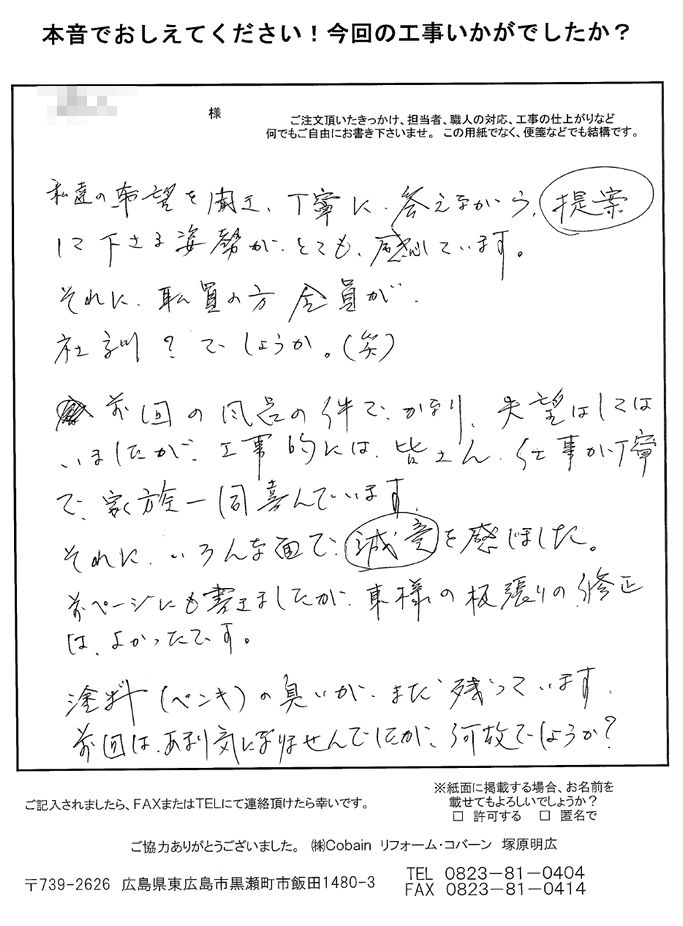 本音でおしえてください！今回の工事いかがでしたか？
様
ご注文頂いたきっかけ、担当者、職人の対応、工事の仕上がりなど
何でもご自由にお書き下さいませ。この用紙でなく、便箋などでも結構です。
私達の希望を聞き、丁寧に、答えながら、提案
して下さる姿勢が、とても、感じています。
それに、職員の方 全員が、
社訓？でしょうか。(笑)
前回の風呂の件で、かなり、失望はしては
いましたが、工事的には、皆さん、仕事が丁寧
で、家族一同喜んでいます。
それに、いろんな面で、誠意を感じました。
前ページにも書きましたが、東様の板張りの修正
は、よかったです。
塗料(ペンキ)の臭いが、まだ残っています。
前回は、あまり気になりませんでしたが、何故でしょうか？
ご記入されましたら、FAXまたはTELにて連絡頂けたら幸いです。
※紙面に掲載する場合、お名前を
載せてもよろしいでしょうか？
□ 許可する □ 匿名で
ご協力ありがとうございました。 ㈱Cobain リフォーム・コバーン 塚原明広
〒739-2626 広島県東広島市黒瀬町市飯田1480-3
TEL 0823-81-0404
FAX 0823-81-0414